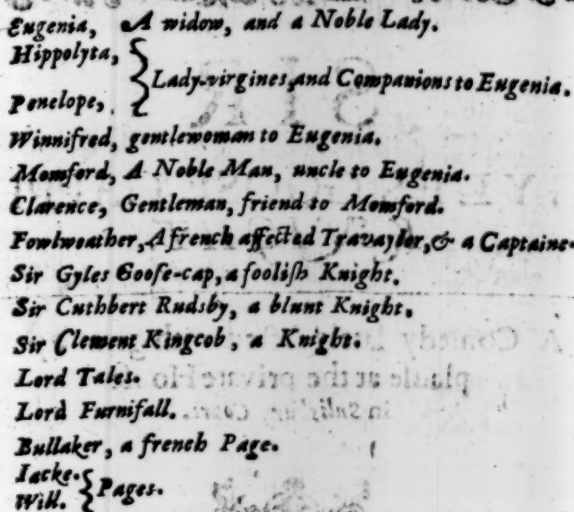 Eugenia, A widow, and a Noble Lady.
Hippolyta,
Lady-virgines, and Companions to Eugenia.
Penelope,
Winnifred, gentlewoman to Eugenia.
Momford, A Noble Man, uncle to Eugenia.
Clarence, Gentleman, friend to Momford.
Fowlweather, A french affected Travayler, & a Captaine.
Sir Gyles Goose-cap, a foolish Knight.
Sir Cuthbert Rudsby, a blunt Knight.
Sir Clement Kingcob, a Knight.
Lord Tales.
Lord Furnifall.
Bullaker, a french Page.
Iacke.
Pages.
Will.